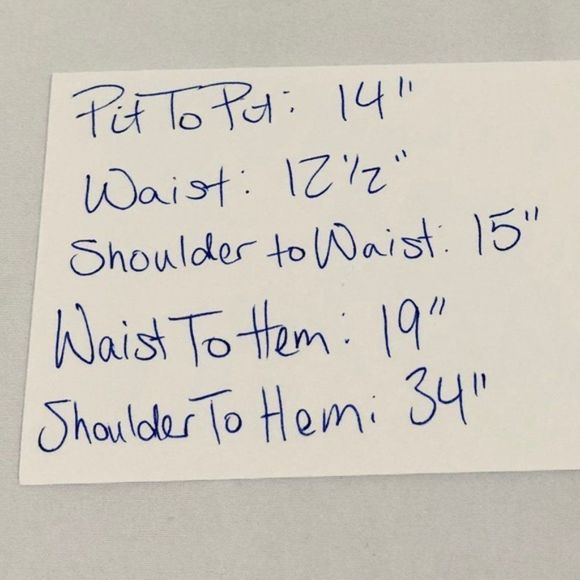 Pit To Pit: 14"
Waist: 12 1/2"
Shoulder to Waist: 15"
Waist To Hem: 19"
Shoulder To Hem: 34"